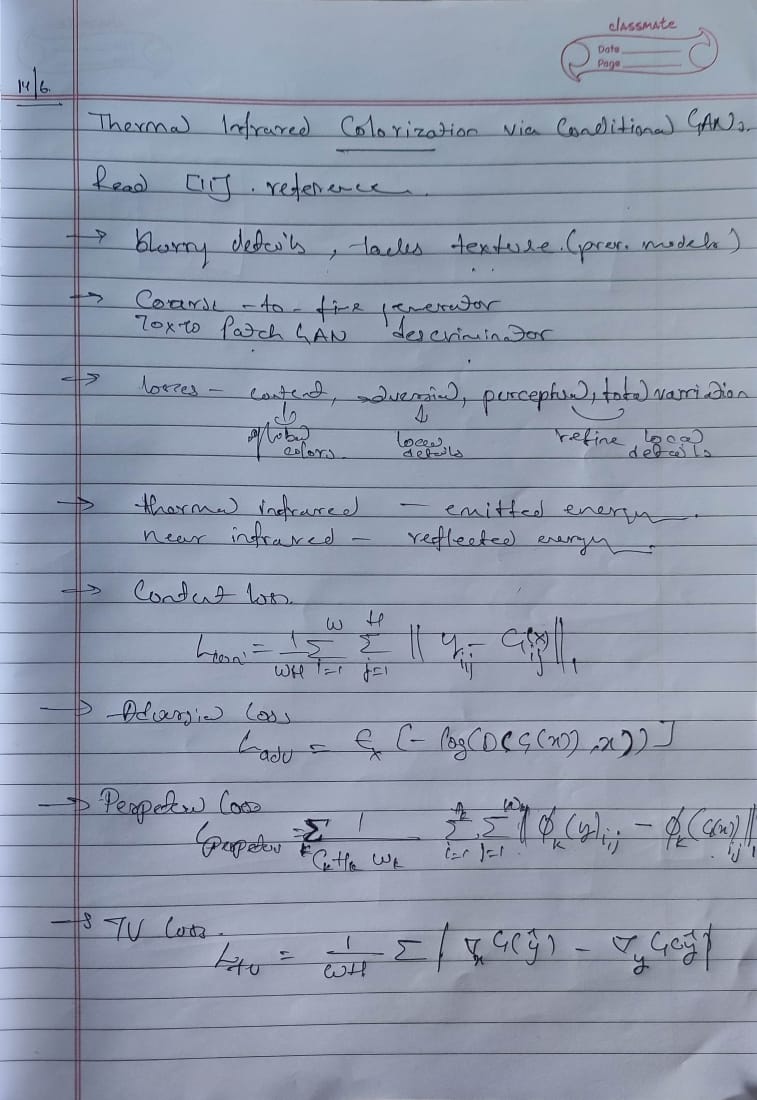 classmate
Date
Page
14/6.
Thermal Infrared Colorization via Conditional GANs.
Read [11]. reference
→ blurry details, lacks texture. (prev. models)
→ Coarse-to-fine generator
70x70 Patch GAN descriminator
→ losses – content, adversial, perceptual, total varriation
global colors
local details
refine local details
→ thermal infrared – emitted energy.
near infrared – reflected energy.
→ Content loss.
L_con = 1/WH Σ_{i=1}^{W} Σ_{j=1}^{H} || y_ij - G(x)_ij ||_1
→ Loss
L_adv = E_x [- log(D(G(x)), x))]
→ Loss
= Σ_k 1/C_k H_k W_k Σ_{i=1}^{H_k} Σ_{j=1}^{W_k} || ϕ_k(y)_{i,j} - ϕ_k(G(x))_{i,j} ||_1
→ TV Loss.
L_tv = 1/WH Σ | ∇_x G(ŷ) - ∇_y G(ŷ) |